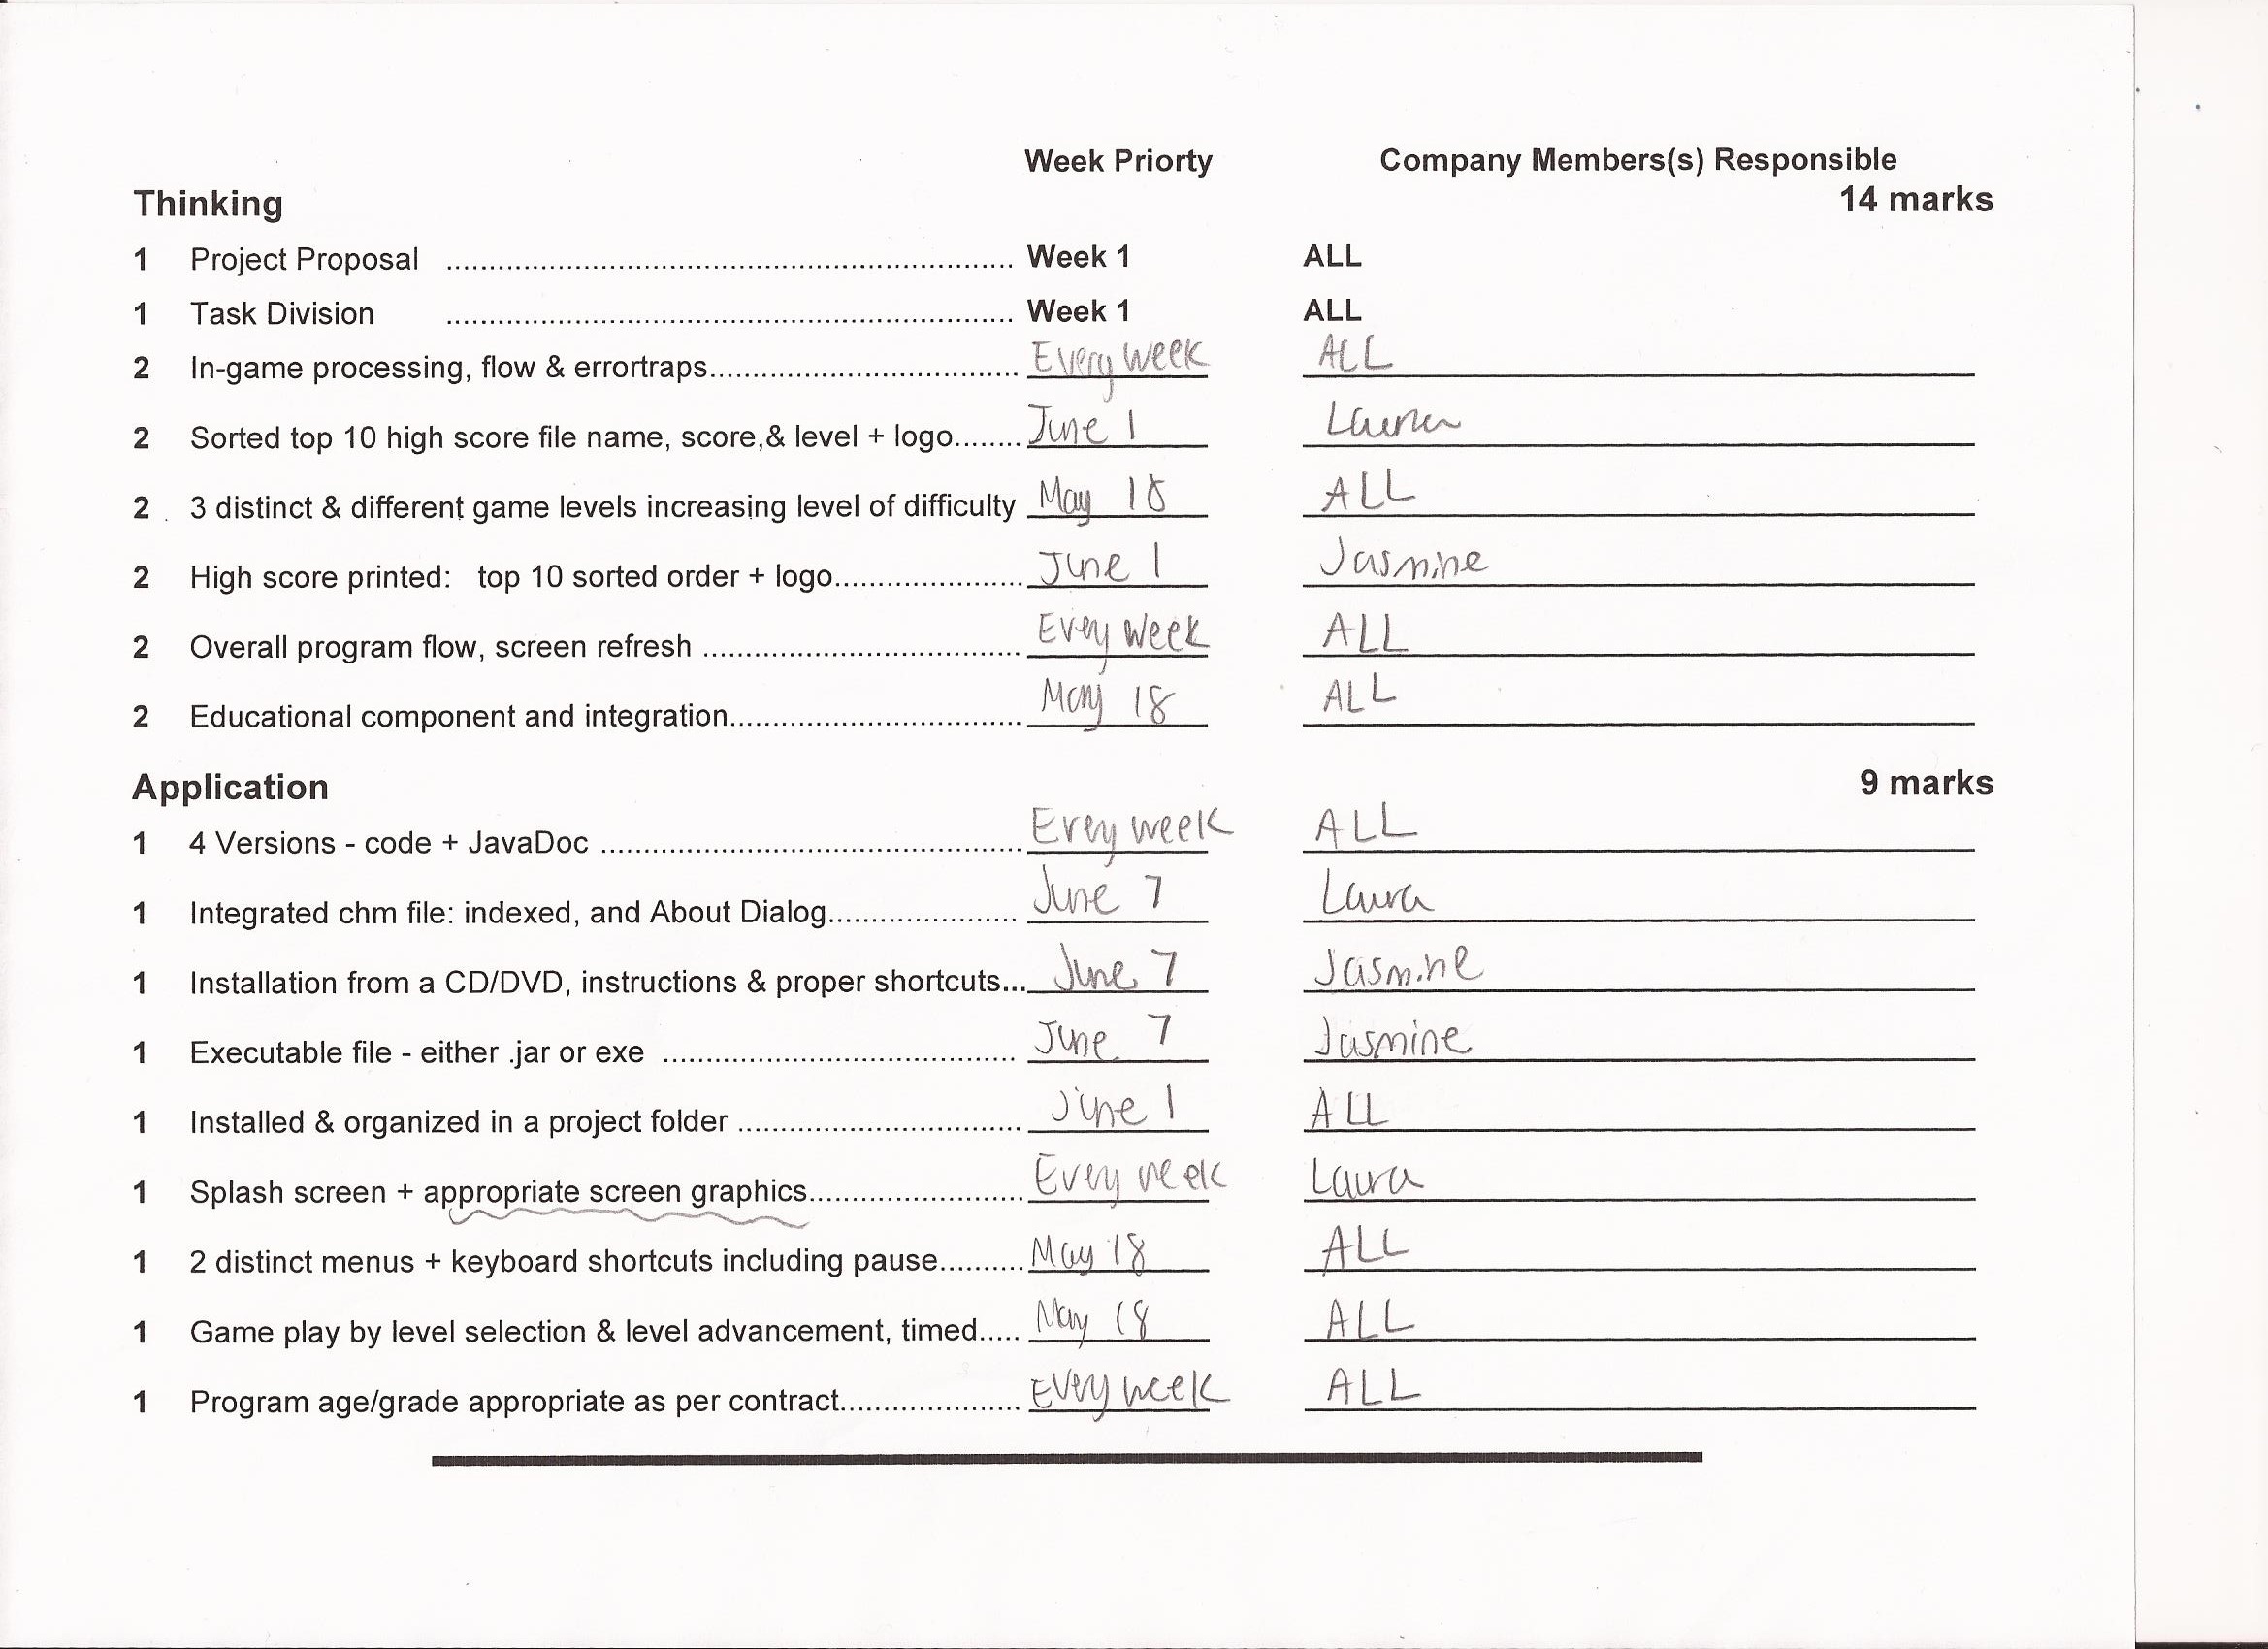 Week Priorty Company Members(s) Responsible
Thinking 14 marks
1 Project Proposal ................................................................. Week 1 ALL
1 Task Division ................................................................. Week 1 ALL
2 In-game processing, flow & errortraps.................................... Every week ALL
2 Sorted top 10 high score file name, score,& level + logo........ June 1 Laura
2 3 distinct & different game levels increasing level of difficulty May 18 ALL
2 High score printed: top 10 sorted order + logo...................... June 1 Jasmine
2 Overall program flow, screen refresh ..................................... Every week ALL
2 Educational component and integration.................................. May 18 ALL
Application 9 marks
1 4 Versions - code + JavaDoc ................................................. Every week ALL
1 Integrated chm file: indexed, and About Dialog...................... June 7 Laura
1 Installation from a CD/DVD, instructions & proper shortcuts... June 7 Jasmine
1 Executable file - either .jar or exe ......................................... June 7 Jasmine
1 Installed & organized in a project folder ................................. June 1 ALL
1 Splash screen + appropriate screen graphics......................... Every week Laura
1 2 distinct menus + keyboard shortcuts including pause.......... May 18 ALL
1 Game play by level selection & level advancement, timed..... May 18 ALL
1 Program age/grade appropriate as per contract..................... Every week ALL